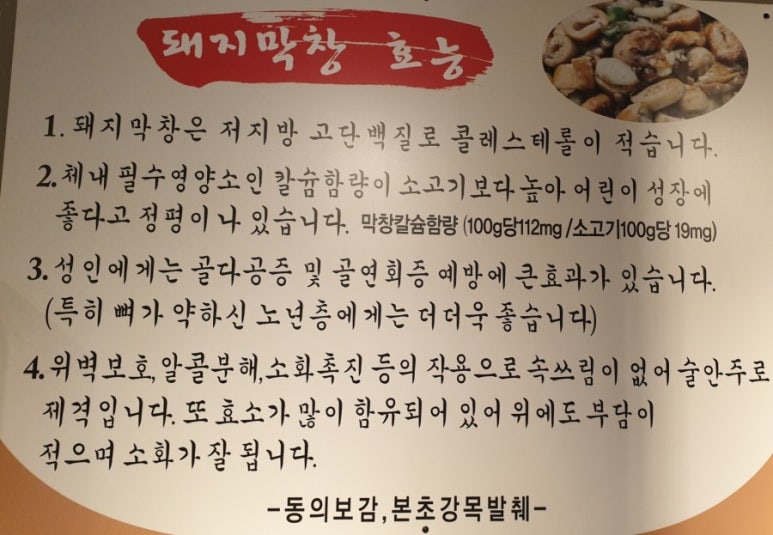 돼지막창 효능
1. 돼지막창은 저지방 고단백질로 콜레스테롤이 적습니다.
2. 체내 필수영양소인 칼슘함량이 소고기보다 높아 어린이 성장에
좋다고 정평이나 있습니다. 막창칼슘함량 (100g당112mg /소고기100g당 19mg)
3. 성인에게는 골다공증 및 골연화증 예방에 큰효과가 있습니다.
(특히 뼈가 약하신 노년층에게는 더더욱 좋습니다)
4. 위벽보호,알콜분해,소화촉진 등의 작용으로 속쓰림이 없어 술안주로
제격입니다. 또 효소가 많이 함유되어 있어 위에도 부담이
적으며 소화가 잘 됩니다.
-동의보감,본초강목발췌-